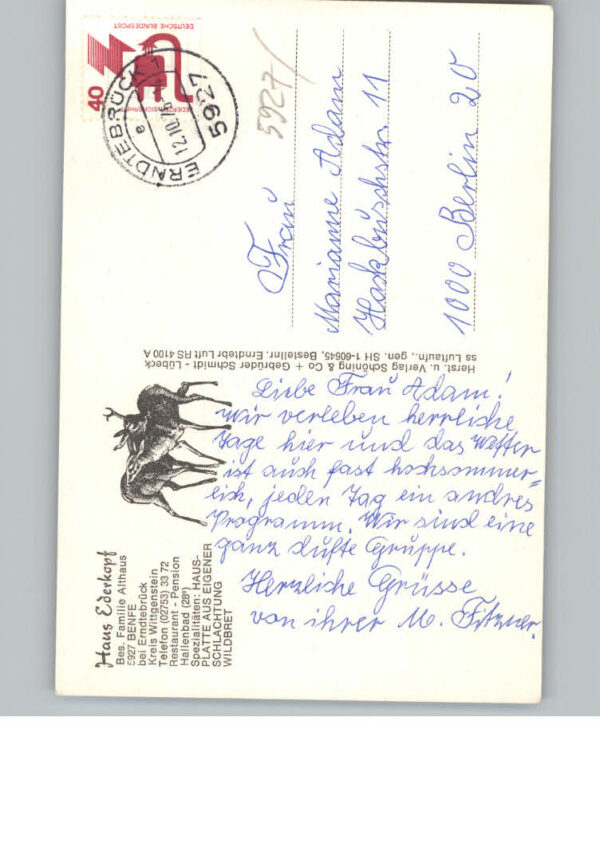 Haus Ederkopf
Bes. Familie Althaus
5927 BENFE
bei Erndtebrück
Kreis Wittgenstein
Telefon (02753) 33 72
Restaurant - Pension
Hallenbad (28°)
Spezialitäten: HAUS-
PLATTE AUS EIGENER
SCHLACHTUNG
WILDBRET
Liebe Frau Adam!
Wir verleben herrliche
Tage hier und das Wetter
ist auch fast hochsommer=
lich, jeden Tag ein andres
Programm. Wir sind eine
ganz dufte Gruppe.
Herzliche Grüsse
von ihrer M. Fitzner.
Herst. u. Verlag Schöning & Co + Gebrüder Schmidt - Lübeck
ss Luftaufn., gen. SH 1-60645, Bestellnr. Erndtebr Luft RS 4100 A
DEUTSCHE BUNDESPOST
40
JEDERZEIT SICHERHEIT
ERNDTEBRÜCK 1
12.10.
e
5927
5927/
Frau
Marianne Adam
11
1000 Berlin 20